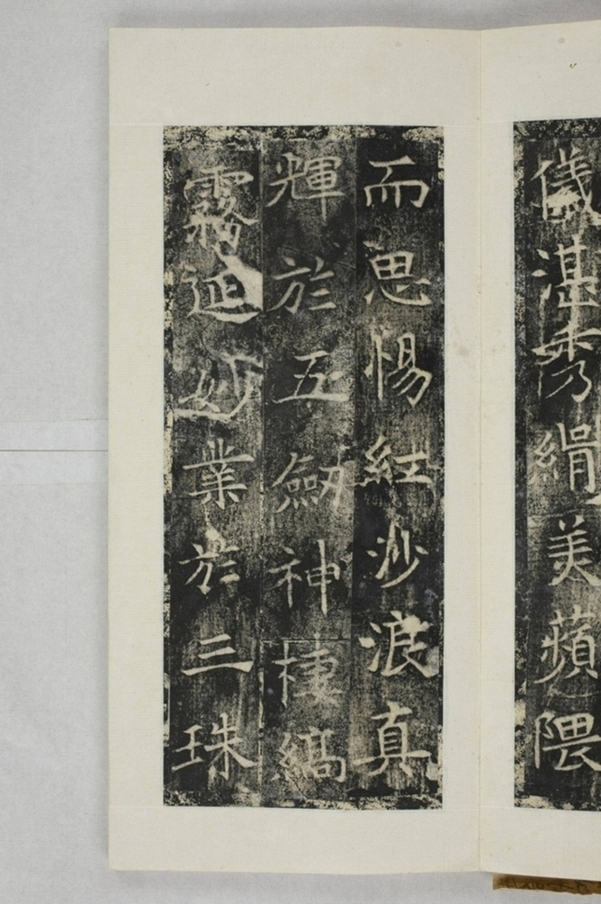 儀湛秀絹美蘋隈
而思惕紅沙浪真
輝於五劒神棲縞
霧延妙業於三珠